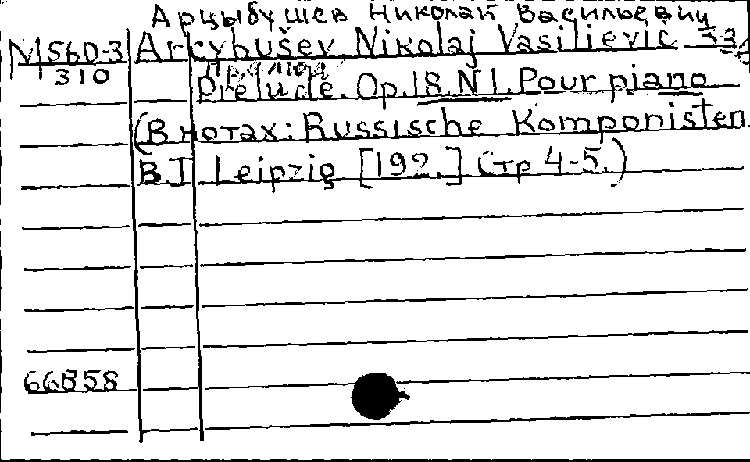 Арцыбушев Николай Васильевич
M 560-3 Arcybušev Nikolaj Vasilievic
310 Прелюд
Prélude. Op. 18. N 1. Pour piano
(В нотах: Russische Komponisten
B I Leipzig [192.] Стр 4-5.)
66858